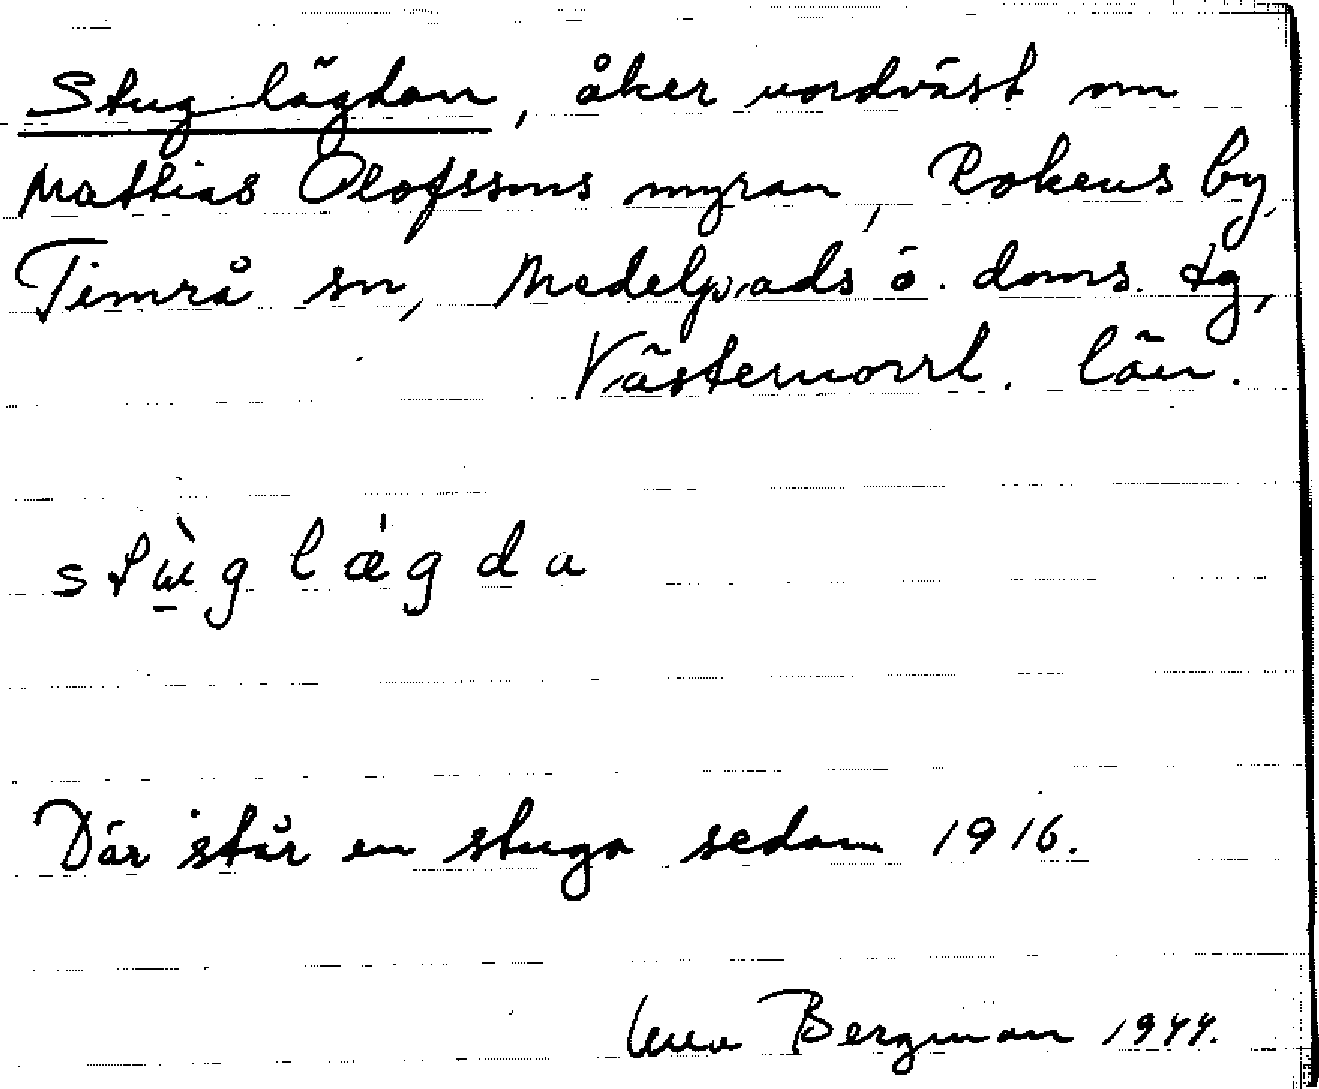 Stuglägdan, åker nordväst om
Mattias Olofssons myran, Rokens by,
Timrå sn, Medelpads ö. doms. tg,
Västernorrl. län.
stùglǽgda
Där står en stuga sedan 1916.
Bergman 1944.